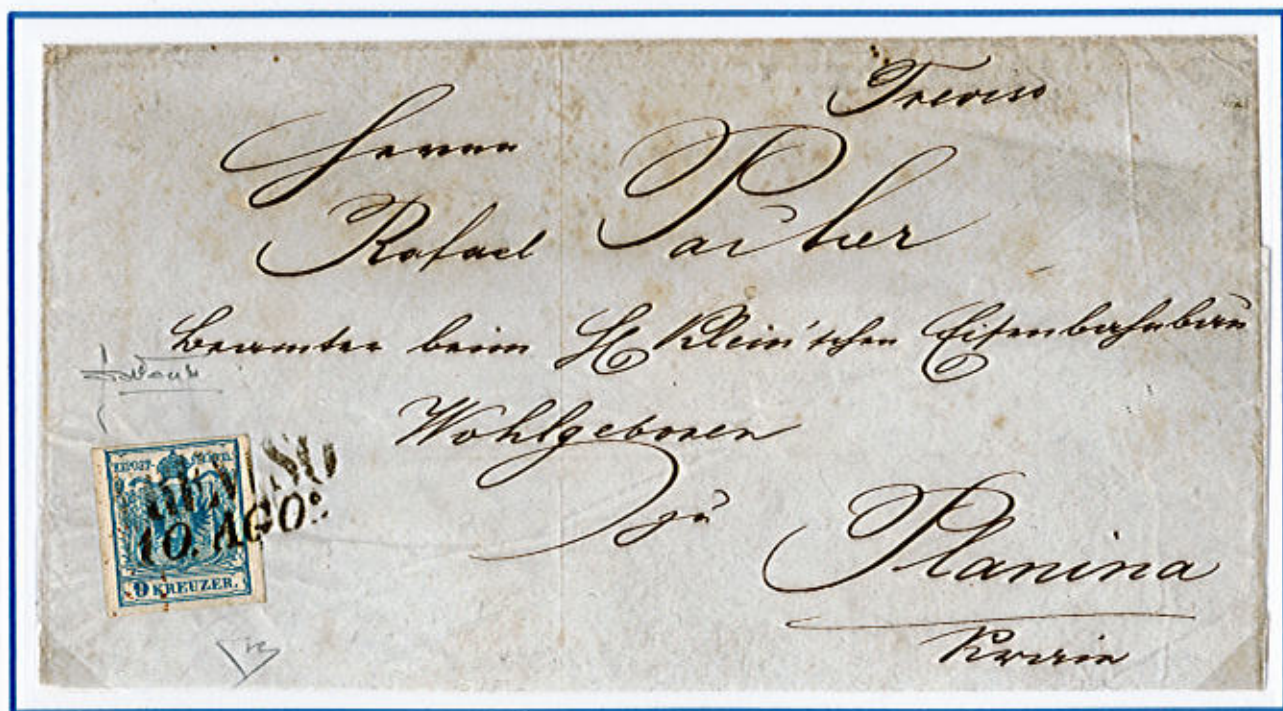 Treviso
Herrn
Rafael
Beamter beim H Klein'schen Eisenbahnbau
Wohlgeboren
zu
Planina
Krain
TREVISO
10. AGO.
9 KREUZER.